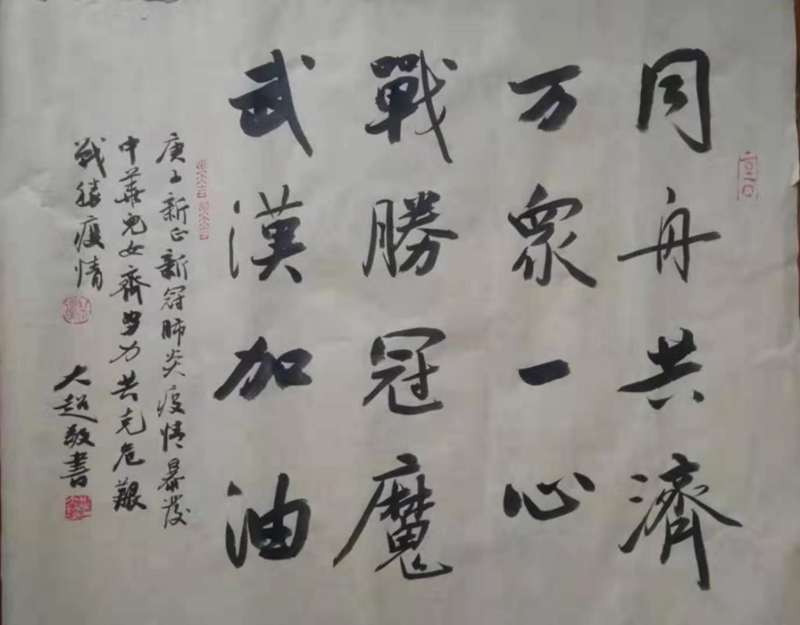 同舟共濟
万眾一心
戰勝冠魔
武漢加油
庚子新正新冠肺炎疫情暴发
中華儿女齊努力共克危艱
战勝疫情
大超敬書